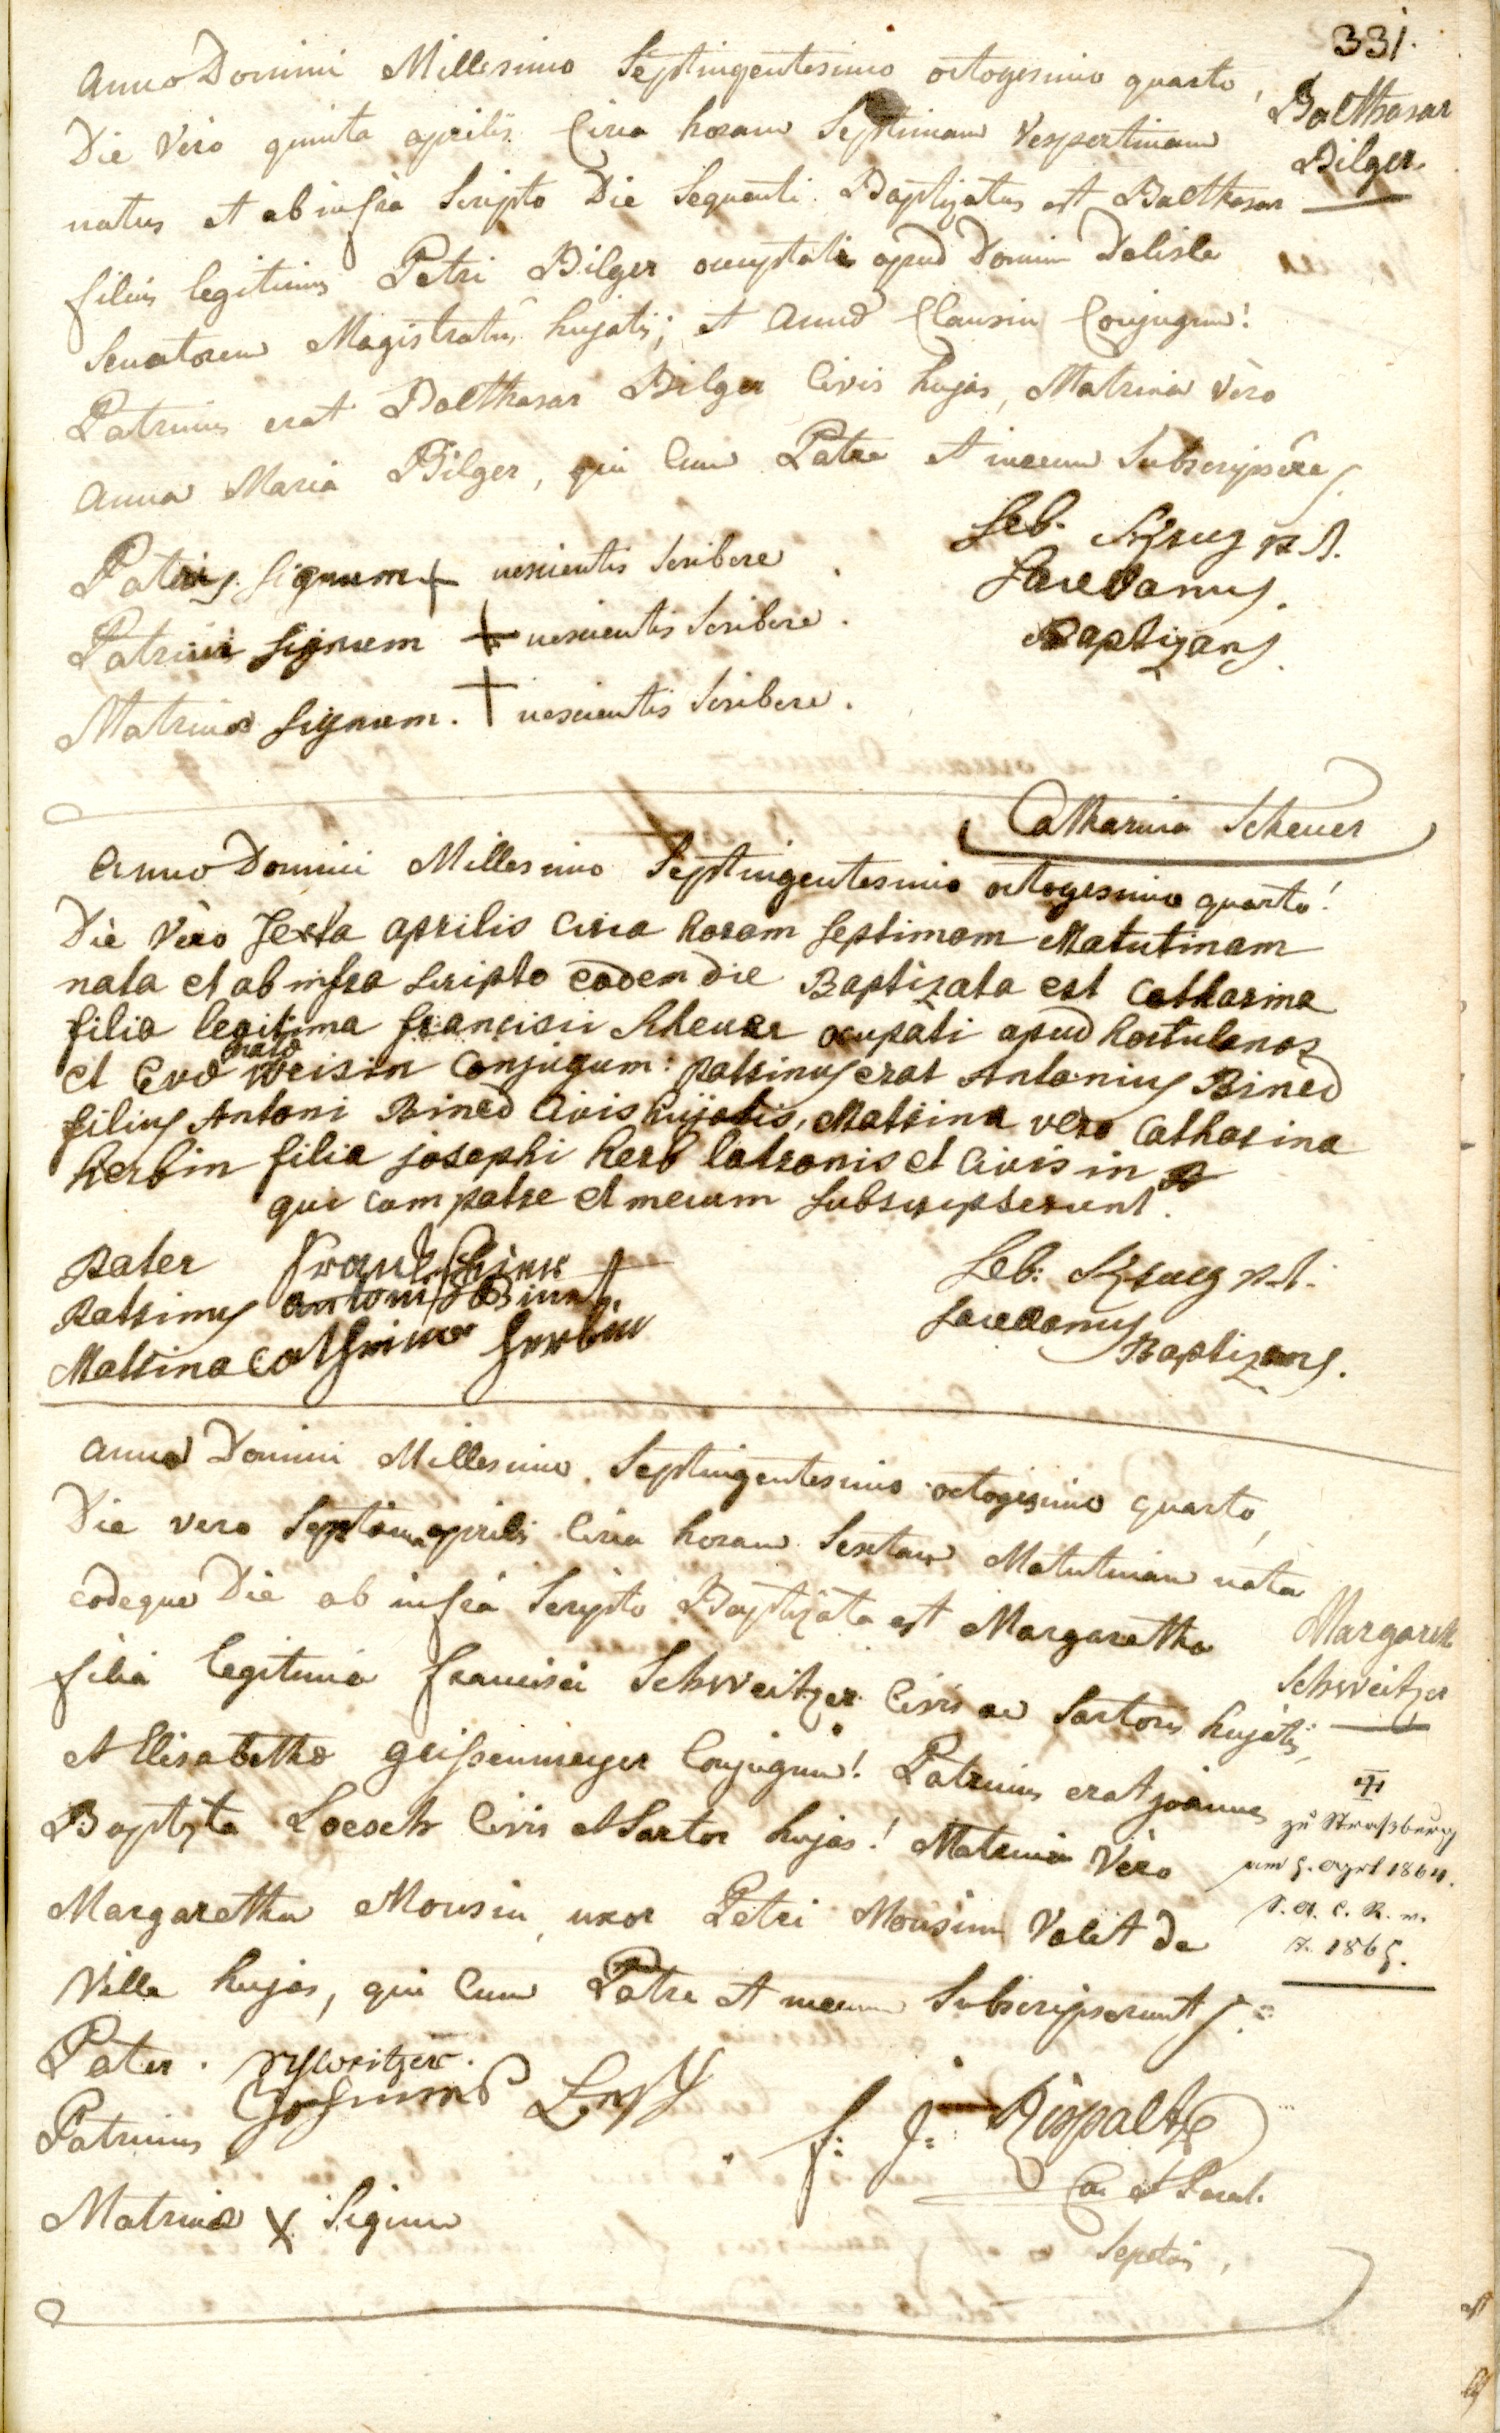 331.
Anno Domini Millesimo Septingentesimo octogesimo quarto,
Balthasar
Bilger.
Die Vero quinta aprilis Circa horam Septimam Vespertinam
natus et ab infra Scripto Die Sequenti Baptizatus est Balthasar
filius legitimus Petri Bilger occupati apud Domin Delisle
Senatorem Magistratus hujatis; et Annæ Clausin Conjugum!
Patrinus erat Balthasar Bilger Civis hujas, Matrina Vero
Anna Maria Bilger, qui Cum Patre et mecum Subscripsere
Patris signum + nescientis Scribere
Patrini signum + nescientis Scribere.
Matrinæ signum. + nescientis Scribere.
Seb. Krug p.t.
Sacellanus.
Baptizans.
Catharina Scheuer
Anno Domini Millesimo Septingentesimo octogesimo quarto!
Die Vero Sexta aprilis circa horam septimam Matutinam
nata et ab infra scripto eadem die Baptizata est Catharina
filia legitima francisii Scheuer ocupati apud hortulanos
et Evæ nata Weisin Conjugum: patrinus erat Antonius Bined
filius Antoni Bined Civis hujatis, Matrina vero Catharina
herbin filia josephi herb latronis et Civis in
qui cum patre et mecum subscripserunt.
pater Frantz
patrinus antoni Binet
Matrina Cathrina Herbin
Seb: Krug p.t.
Sacellanus
Baptizans.
Anno Domini Millesimo Septingentesimo octogesimo quarto,
Die vero Septima aprilis Circa horam Sextam Matutinam nata
eodeque Die ab infra Scripto Baptizata est Margaretha
filia legitima francisci Schweitzer Civis ac Sartoris hujatis,
et Elisabethæ geissenmeyer Conjugum! Patrinus erat joannes
Baptista Loesch Civis et Sartor hujas! Matrina Vero
Margaretha Monsin, uxor Petri Monsin Valet de
Ville hujas, qui Cum Patre et mecum Subscripserunt
Margareth
Schweitzer
zu Strassburg
am 5. 1864.
1865.
Pater. Schweitzer.
Patrinus Johannes
Matrinæ x Signum
f: J: Rispalt